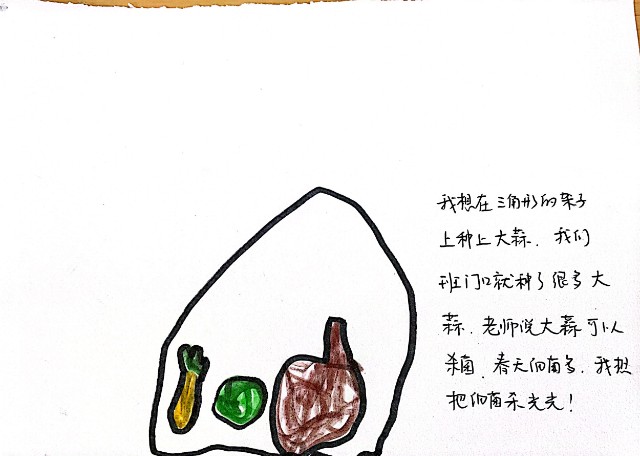 我想在三角形的架子
上种上大蒜、我们
班门口就种了很多大
蒜、老师说大蒜可以
杀菌、春天细菌多、我想
把细菌杀光光！